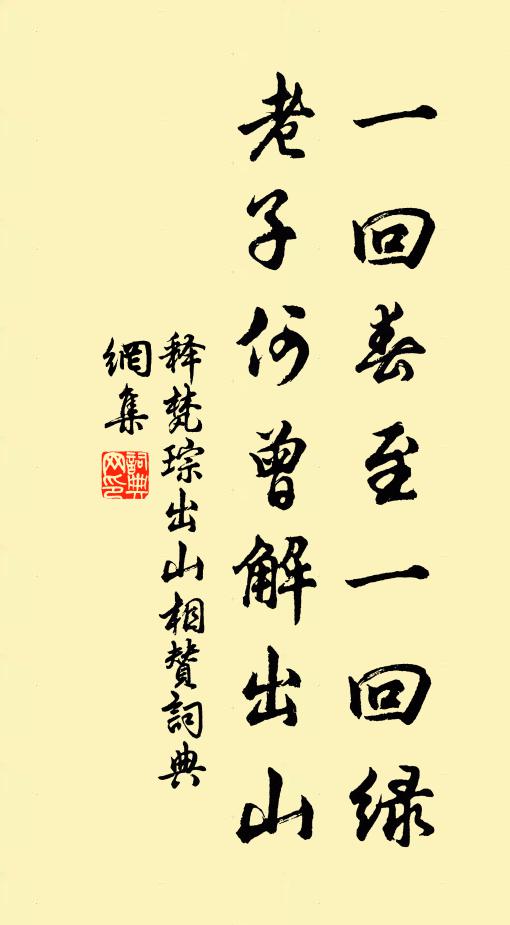 一回春至一回绿
老子何曾解出山
释梵琮出山相赞詞典
網集
詞典网印